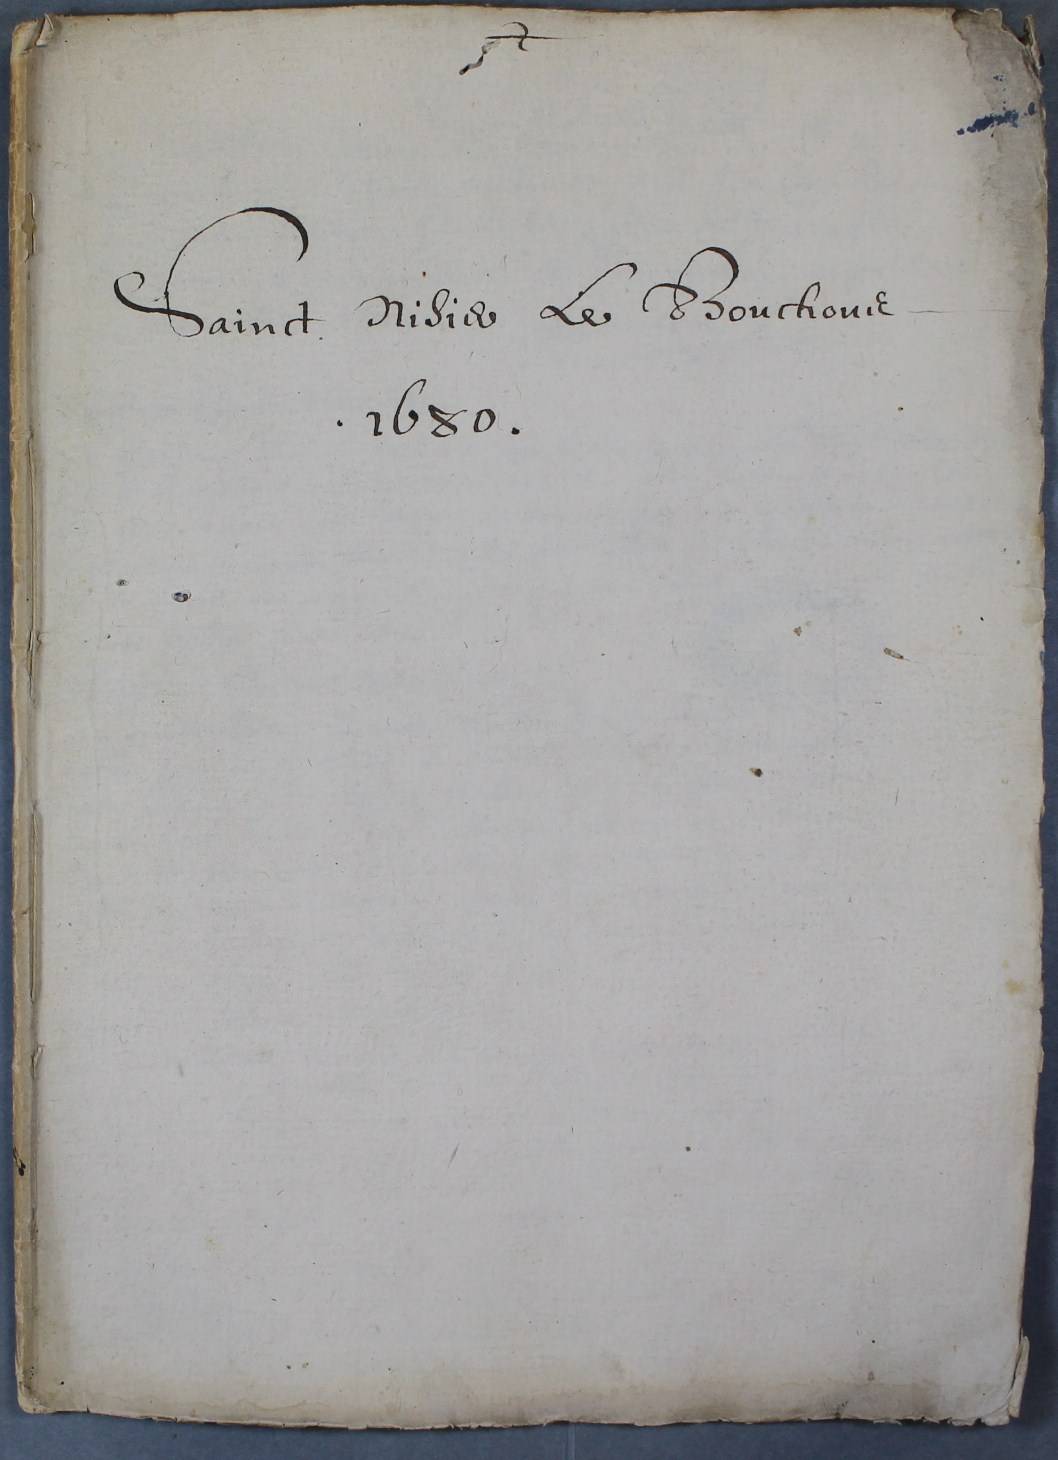 Sainct Nisier Le Bouchoux
.1680.